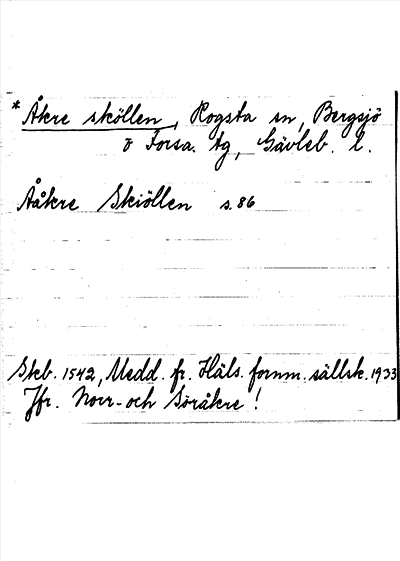 * Åkre sköllen, Rogsta sn, Bergsjö
o Forsa. tg, Gävleb. l.
Aåkre Skiöllen s. 86
Skb. 1542, Medd. fr. Häls. fornm. sällsk. 1933
Jfr. Norr- och Söråkre!